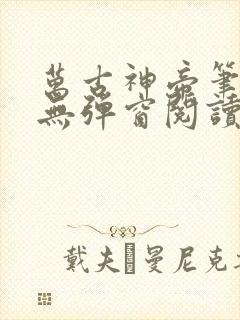 萬古神帝筆
無彈窗閱讀
戴夫·曼尼克